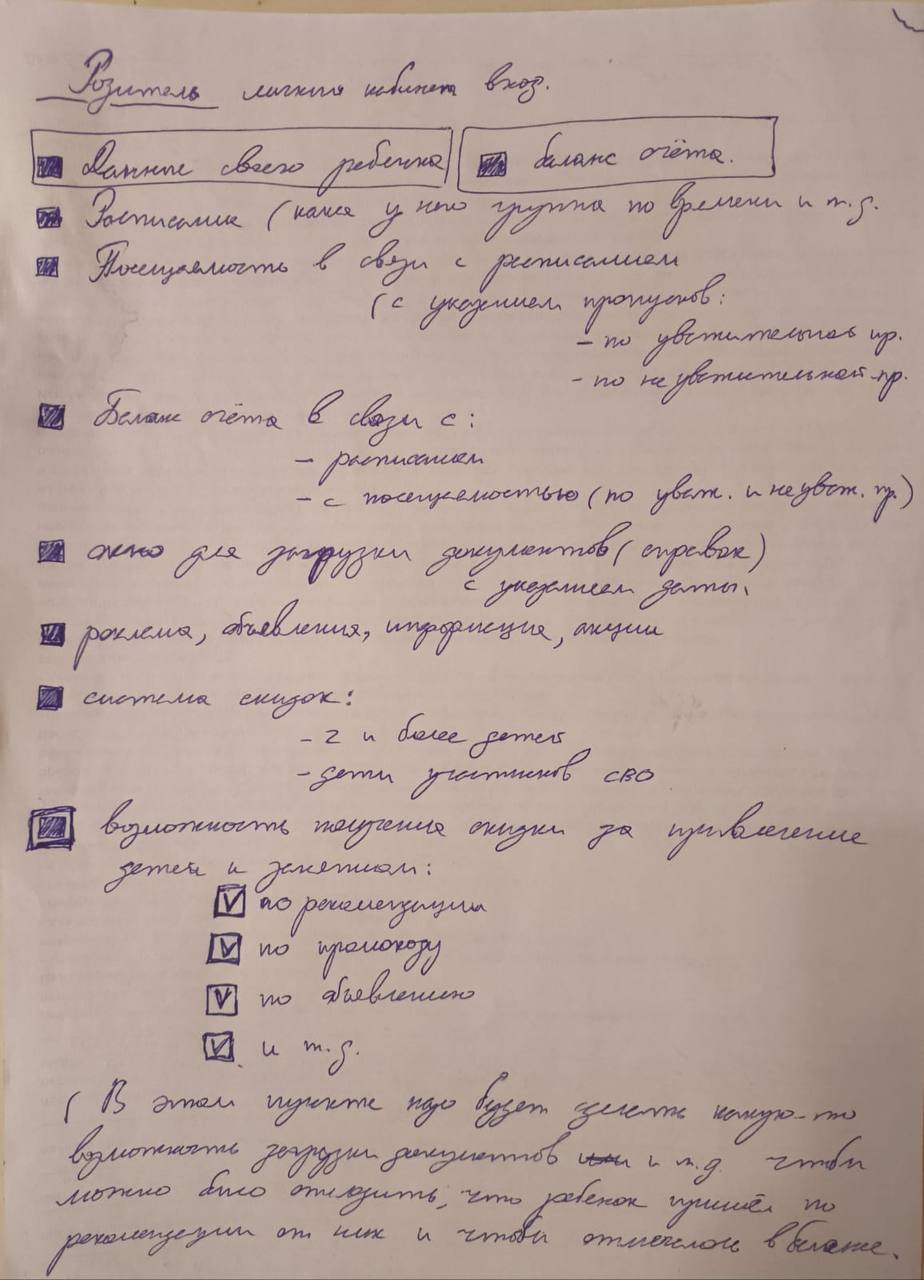 Родитель личного кабинета вход.
Данные своего ребенка
баланс счёта.
Расписание (какая у него группа по времени и т.д.
Посещаемость в связи с расписанием
(с указанием пропусков:
- по уважительной пр.
- по неуважительной пр.
Баланс счёта в связи с:
- расписанием
- с посещаемостью (по уваж. и неуваж. пр.)
окно для загрузки документов (справок)
с указанием даты.
реклама, объявления, информация, акции
система скидок:
- 2 и более детей
- дети участников СВО
возможность получения скидки за привлечение
детей к занятиям:
по рекомендации
по промокоду
по объявлению
и т.д.
(В этом пункте надо будет сделать какую-то
возможность загрузки документов и т.д. чтобы
можно было отследить, что ребенок пришёл по
рекомендации от них и чтобы отмечалось в балансе.